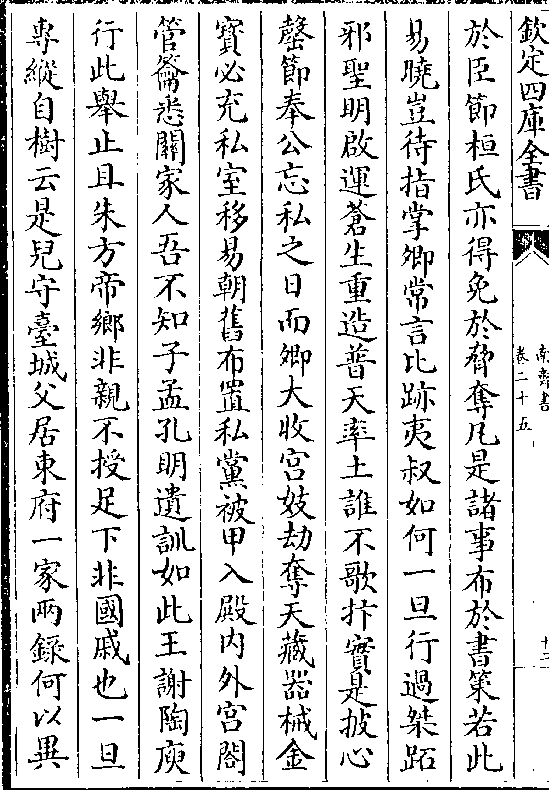 欽定四庫全書
南齊書
卷二十五
十二
於臣節桓氏亦得免於脅奪凡是諸事布於書策若此
易曉豈待指掌卿常言比跡夷叔如何一旦行過桀跖
邪聖明啟運蒼生重造普天率土誰不歌抃實是披心
罄節奉公忘私之日而卿大收宮妓劫奪天藏器械金
寳必充私室移易朝舊布置私黨被甲入殿内外宮閤
管籥悉關家人吾不知子孟孔明遺訓如此王謝陶庾
行此舉止且朱方帝鄉非親不授足下非國戚也一旦
專縱自樹云是兒守臺城父居東府一家兩錄何以異